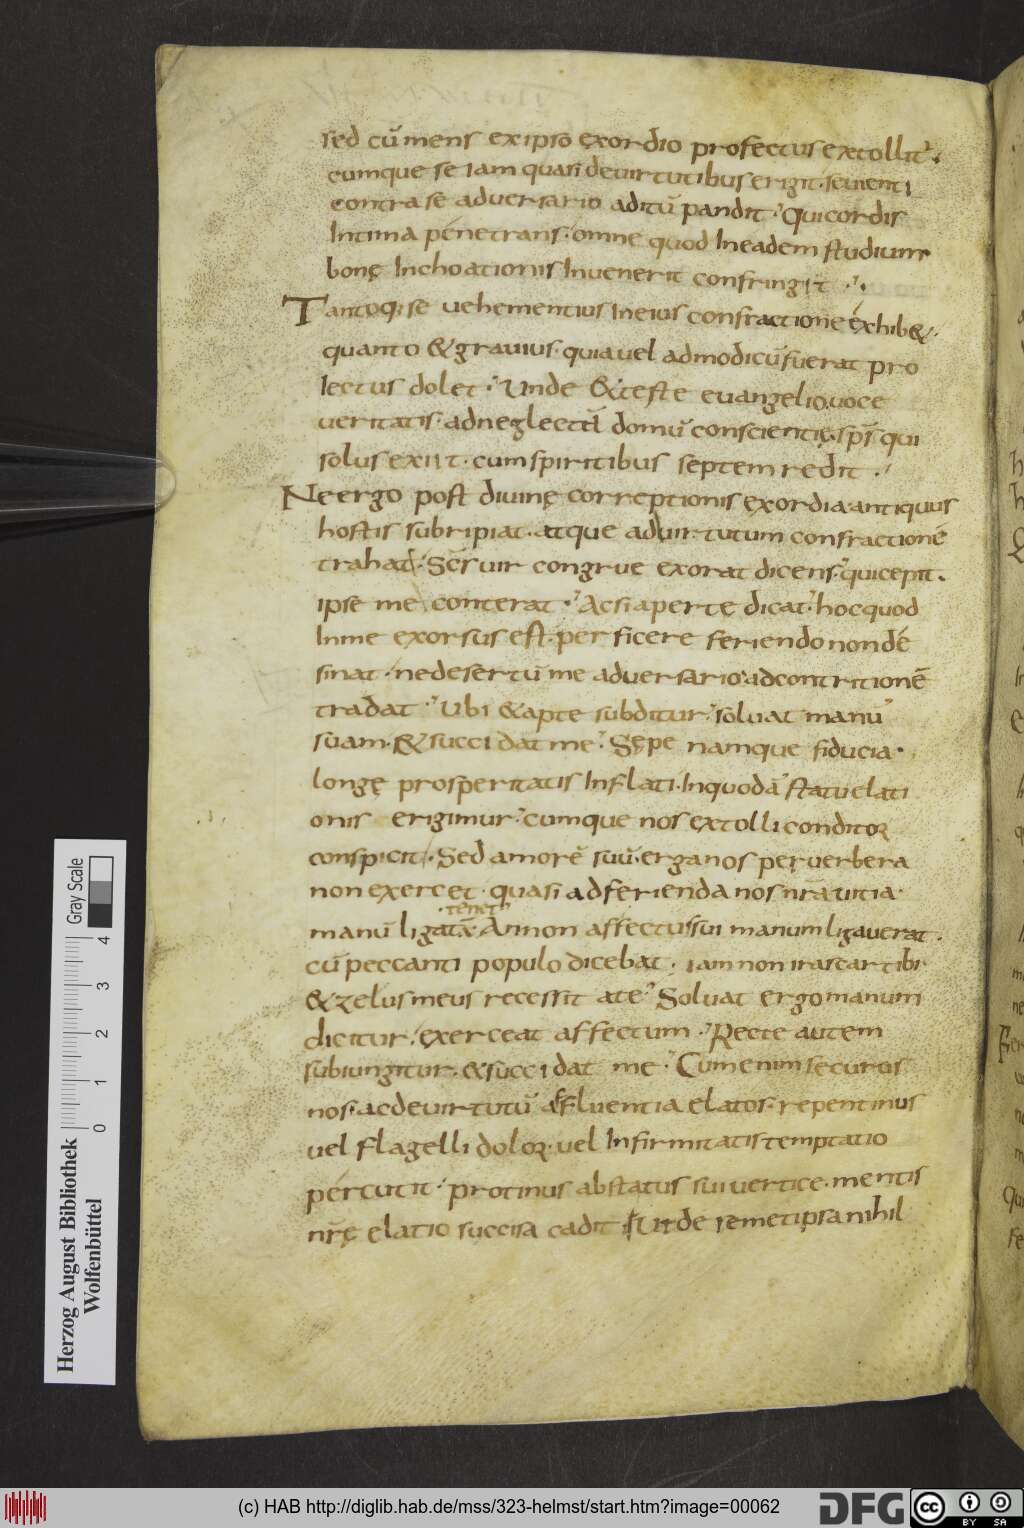 sed cū mens ex ipso ęxordio profectus extollit·
cumque se iam quasi de uirtutibus erigit· seuienti
contra se aduersario aditū pandit· Qui cordis
Intima penetrans· omne quod In eadem studium
bonę Inchoationis Inuenerit confringit·
Tantoq; se uehementius In eius confractione exhib&·
quanto & grauius· quia uel ad modicū fuerat pro
lectus dolet· Unde & teste euangelio uoce
ueritatis· ad neglectā domū conscientię· sp̄s qui
solus exiit· cum spiritibus septem redit·
Ne ergo post diuinę correptionis exordia· antiquus
hostis subripiat· atque ad uirtutum confractionē
trahat· Sc̄s uir congrue exorat dicens· qui cepit·
ipse me conterat· Ac si aperte dicat· hoc quod
In me exorsus est· perficere feriendo non de
sinat· ne desertū me aduersario· ad contritionē
tradat· Ubi & apte subditur· soluat manū
suam· & succidat me· Sępe namque fiducia·
longę prosperitatis Inflati· In quodā statu elati
onis erigimur· cumque nos ęxtolli conditor
conspicit· Sed amorē suū· erga nos per uerbera
non exercet· quasi ad ferienda nos nr̄a uitia·
tenet
manū ligatā· An non affectus sui manum ligauerat·
cū peccanti populo dicebat· iam non irascar tibi
& zelus meus recessit a te· Soluat ergo manum
dicitur· exerceat affectum· Recte autem
subiungitur· & succidat me· Cum enim securos
nos· ac de uirtutū affluentia elatos· repentinus
uel flagelli dolor· uel Infirmitatis temptatio
percutit· protinus abstatus sui uertice· mentis
nr̄ę elatio succisa cadit Ut de semetipsa nihil
Herzog August Bibliothek
Wolfenbüttel
Gray Scale
0 1 2 3 4
(c) HAB http://diglib.hab.de/mss/323-helmst/start.htm?image=00062
DFG
cc BY SA